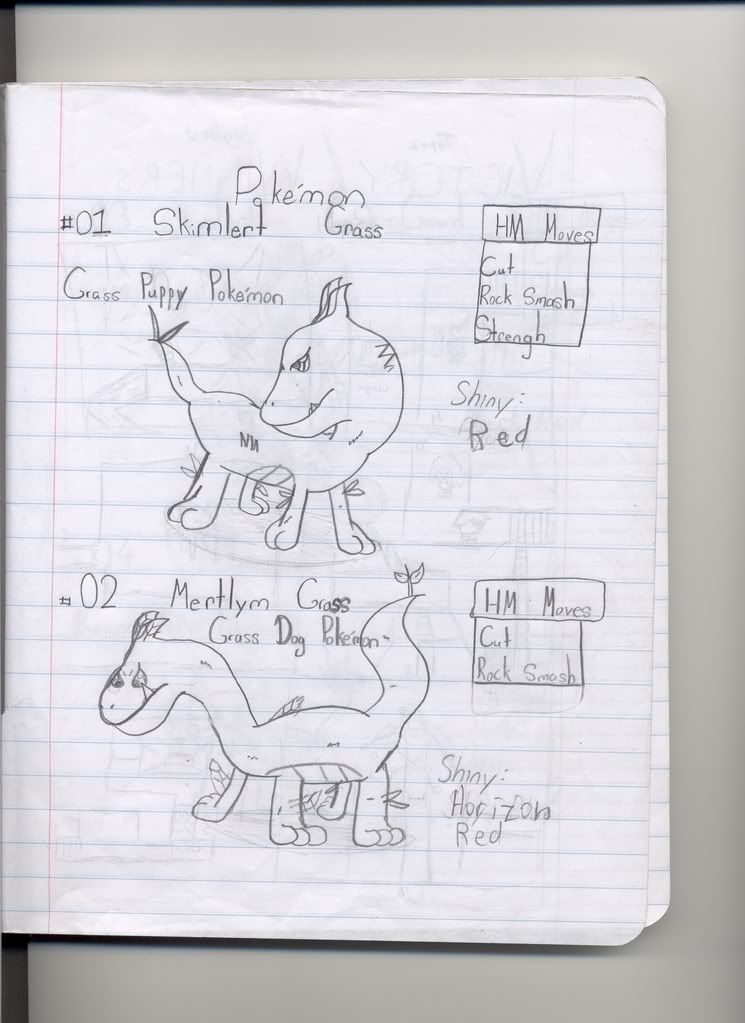 Pokémon
#01 Skimlert Grass
Grass Puppy Pokémon
HM Moves
Cut
Rock Smash
Strengh
Shiny:
Red
#02 Mertlym Grass
Grass Dog Pokémon
HM Moves
Cut
Rock Smash
Shiny:
Horizon
Red